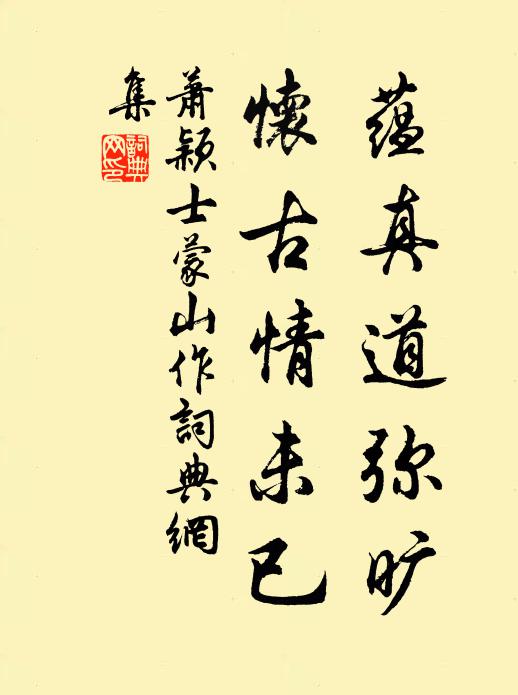 蕴真道弥旷
懷古情未已
萧颖士蒙山作詞典網
集
詞典
网印